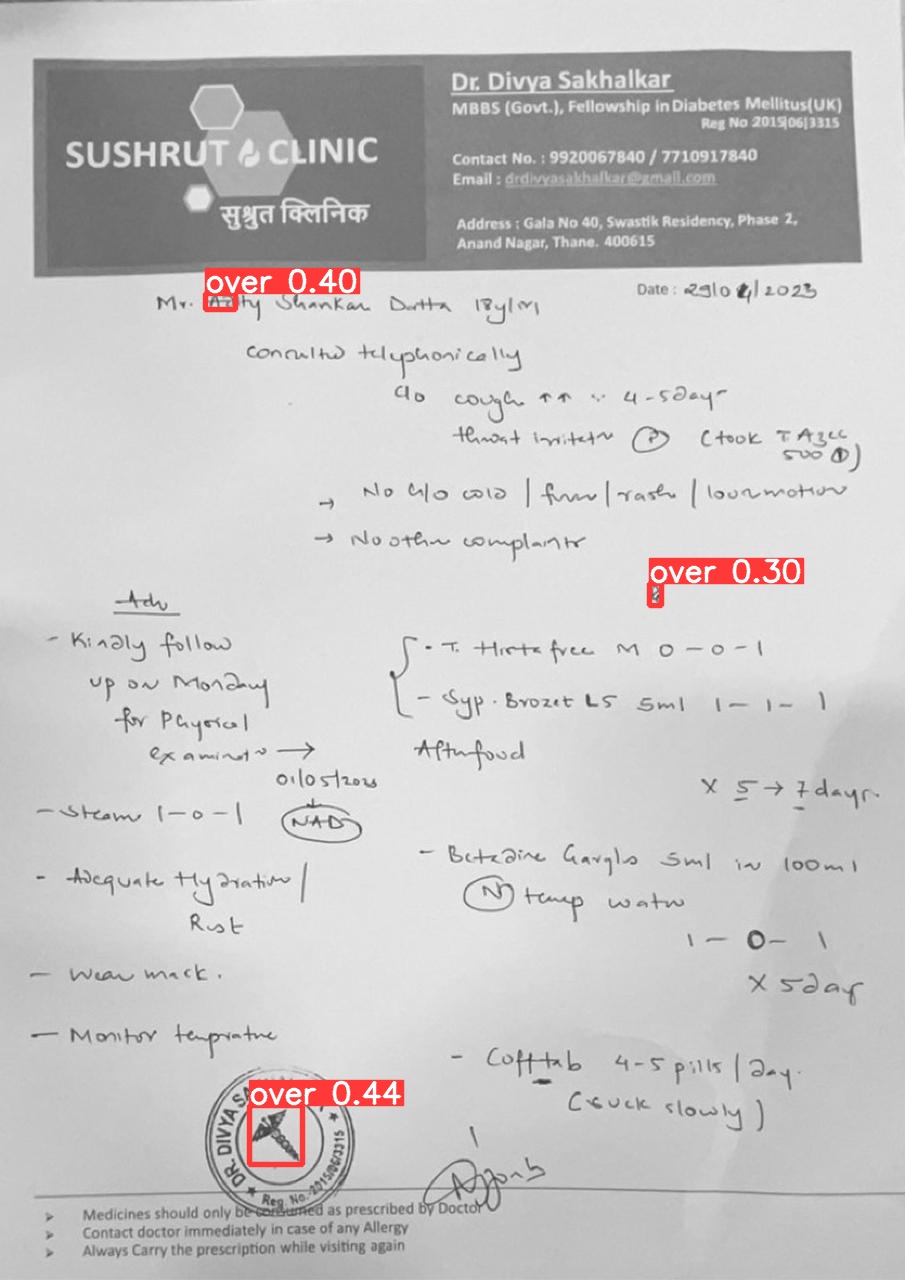 SUSHRUT CLINIC
सुश्रुत क्लिनिक
Dr. Divya Sakhalkar
MBBS (Govt.), Fellowship in Diabetes Mellitus(UK)
Reg No 2015|06|3315
Contact No. : 9920067840 / 7710917840
Email : drdivyasakhalkar@gmail.com
Address : Gala No 40, Swastik Residency, Phase 2,
Anand Nagar, Thane. 400615
over 0.40
Date : 29/04/2023
Mr. Shankar Dutta 18y/M
consulted telephonically
c/o cough ↑↑ 4-5day
throat irritatn (took T Azee
500 ①)
→ No c/o cold / fever / rash / loosemotion
→ No other complaints
over 0.30
Adv
- Kindly follow
up on Monday
for Physical
examinatn →
01/05/2023
NAD
- Steam 1-0-1
- Adequate Hydration /
Rest
- Wear mask.
- Monitor tempratre
- T. Histafree M 0-0-1
- Syp. Brozet LS 5ml 1-1-1
After food
X 5 → 7 days.
- Betadine Gargles 5ml in 100ml
(N) temp water
1-0-1
X 5day
- Cofftab 4-5 pills / day.
(suck slowly)
over 0.44
DR. DIVYA
Reg. No.-2015/06/3315
➢ Medicines should only be consumed as prescribed by Doctor
➢ Contact doctor immediately in case of any Allergy
➢ Always Carry the prescription while visiting again